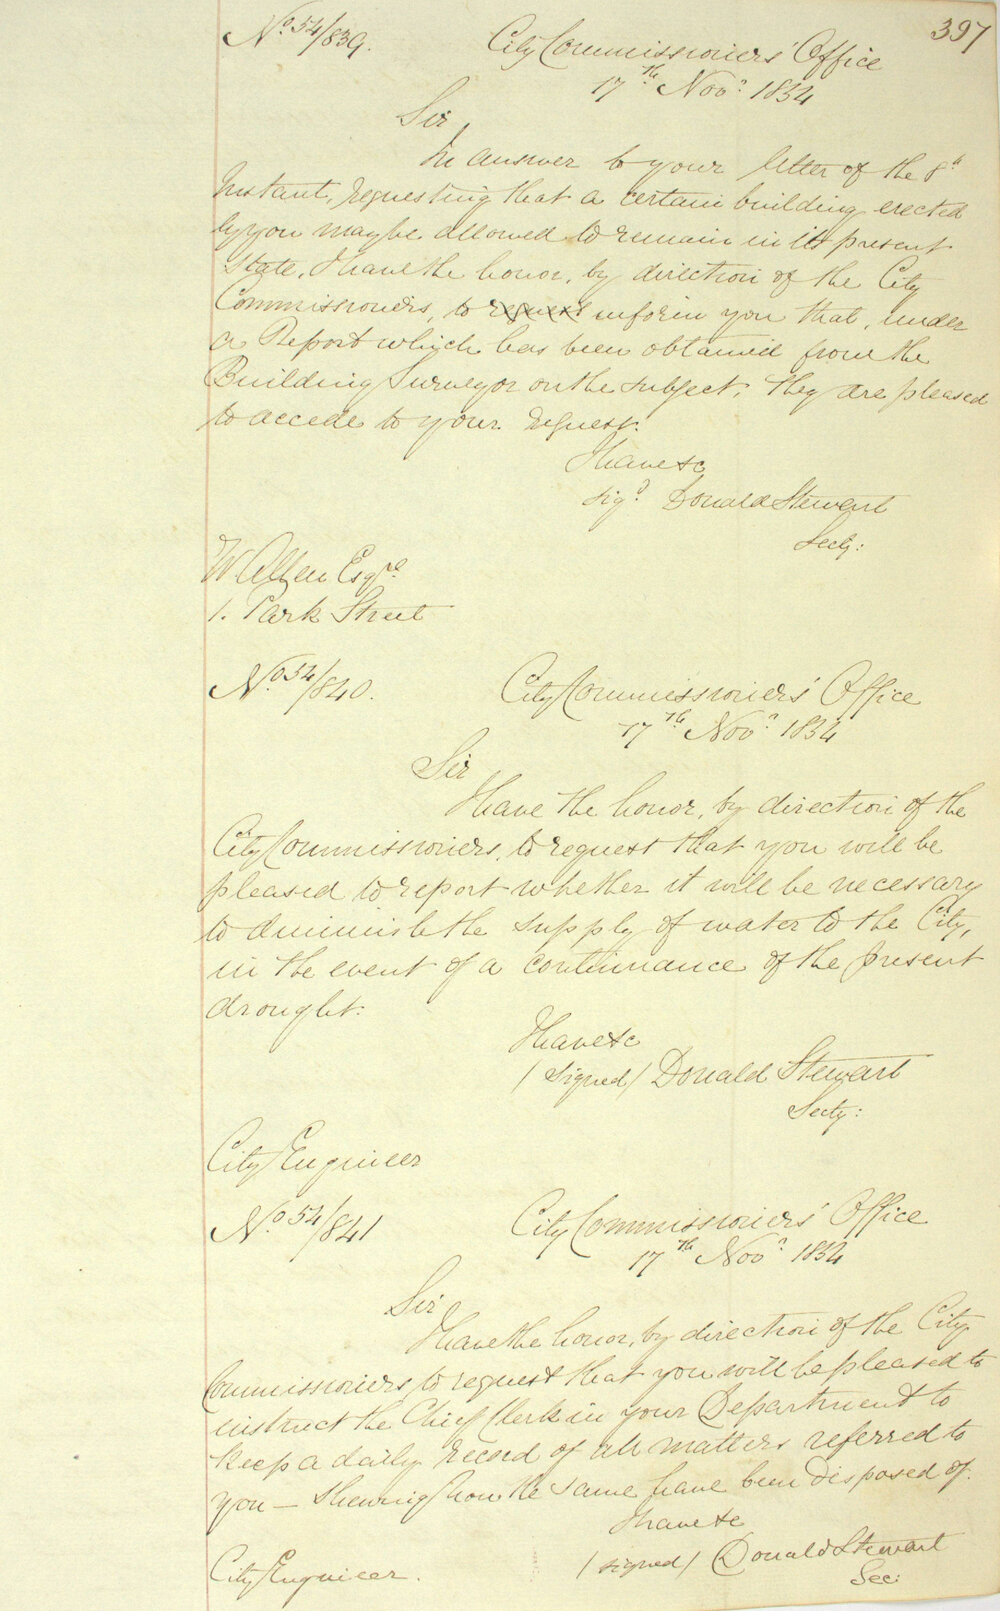 397
No. 54/839. City Commissioners' Office
17th Novr 1854
Sir,
In answer to your letter of the 8th
Instant, requesting that a certain building erected
by you may be allowed to remain in its present
state, I have the honor, by direction of the City
Commissioners, to request inform you that, under
a Report which has been obtained from the
Building Surveyor on the subject, they are pleased
to accede to your request.
I have &c
sigd. Donald Stewart
Secty:
W Allen Esqre
1. Park Street
No. 54/840. City Commissioners' Office
17th Novr 1854
Sir
I have the honor, by direction of the
City Commissioners, to request that you will be
pleased to report whether it will be necessary
to diminish the supply of water to the City,
in the event of a continuance of the present
drought.
I have &c
(signed) Donald Stewart
Secty:
City Engineer
No. 54/841 City Commissioners' Office
17th Novr 1854
Sir
I have the honor, by direction of the City
Commissioners to request that you will be pleased to
instruct the Chief Clerk in your Department to
keep a daily record of all matters referred to
you — shewing how the same have been disposed of.
I have &c
(signed) Donald Stewart
Sec:
City Engineer.